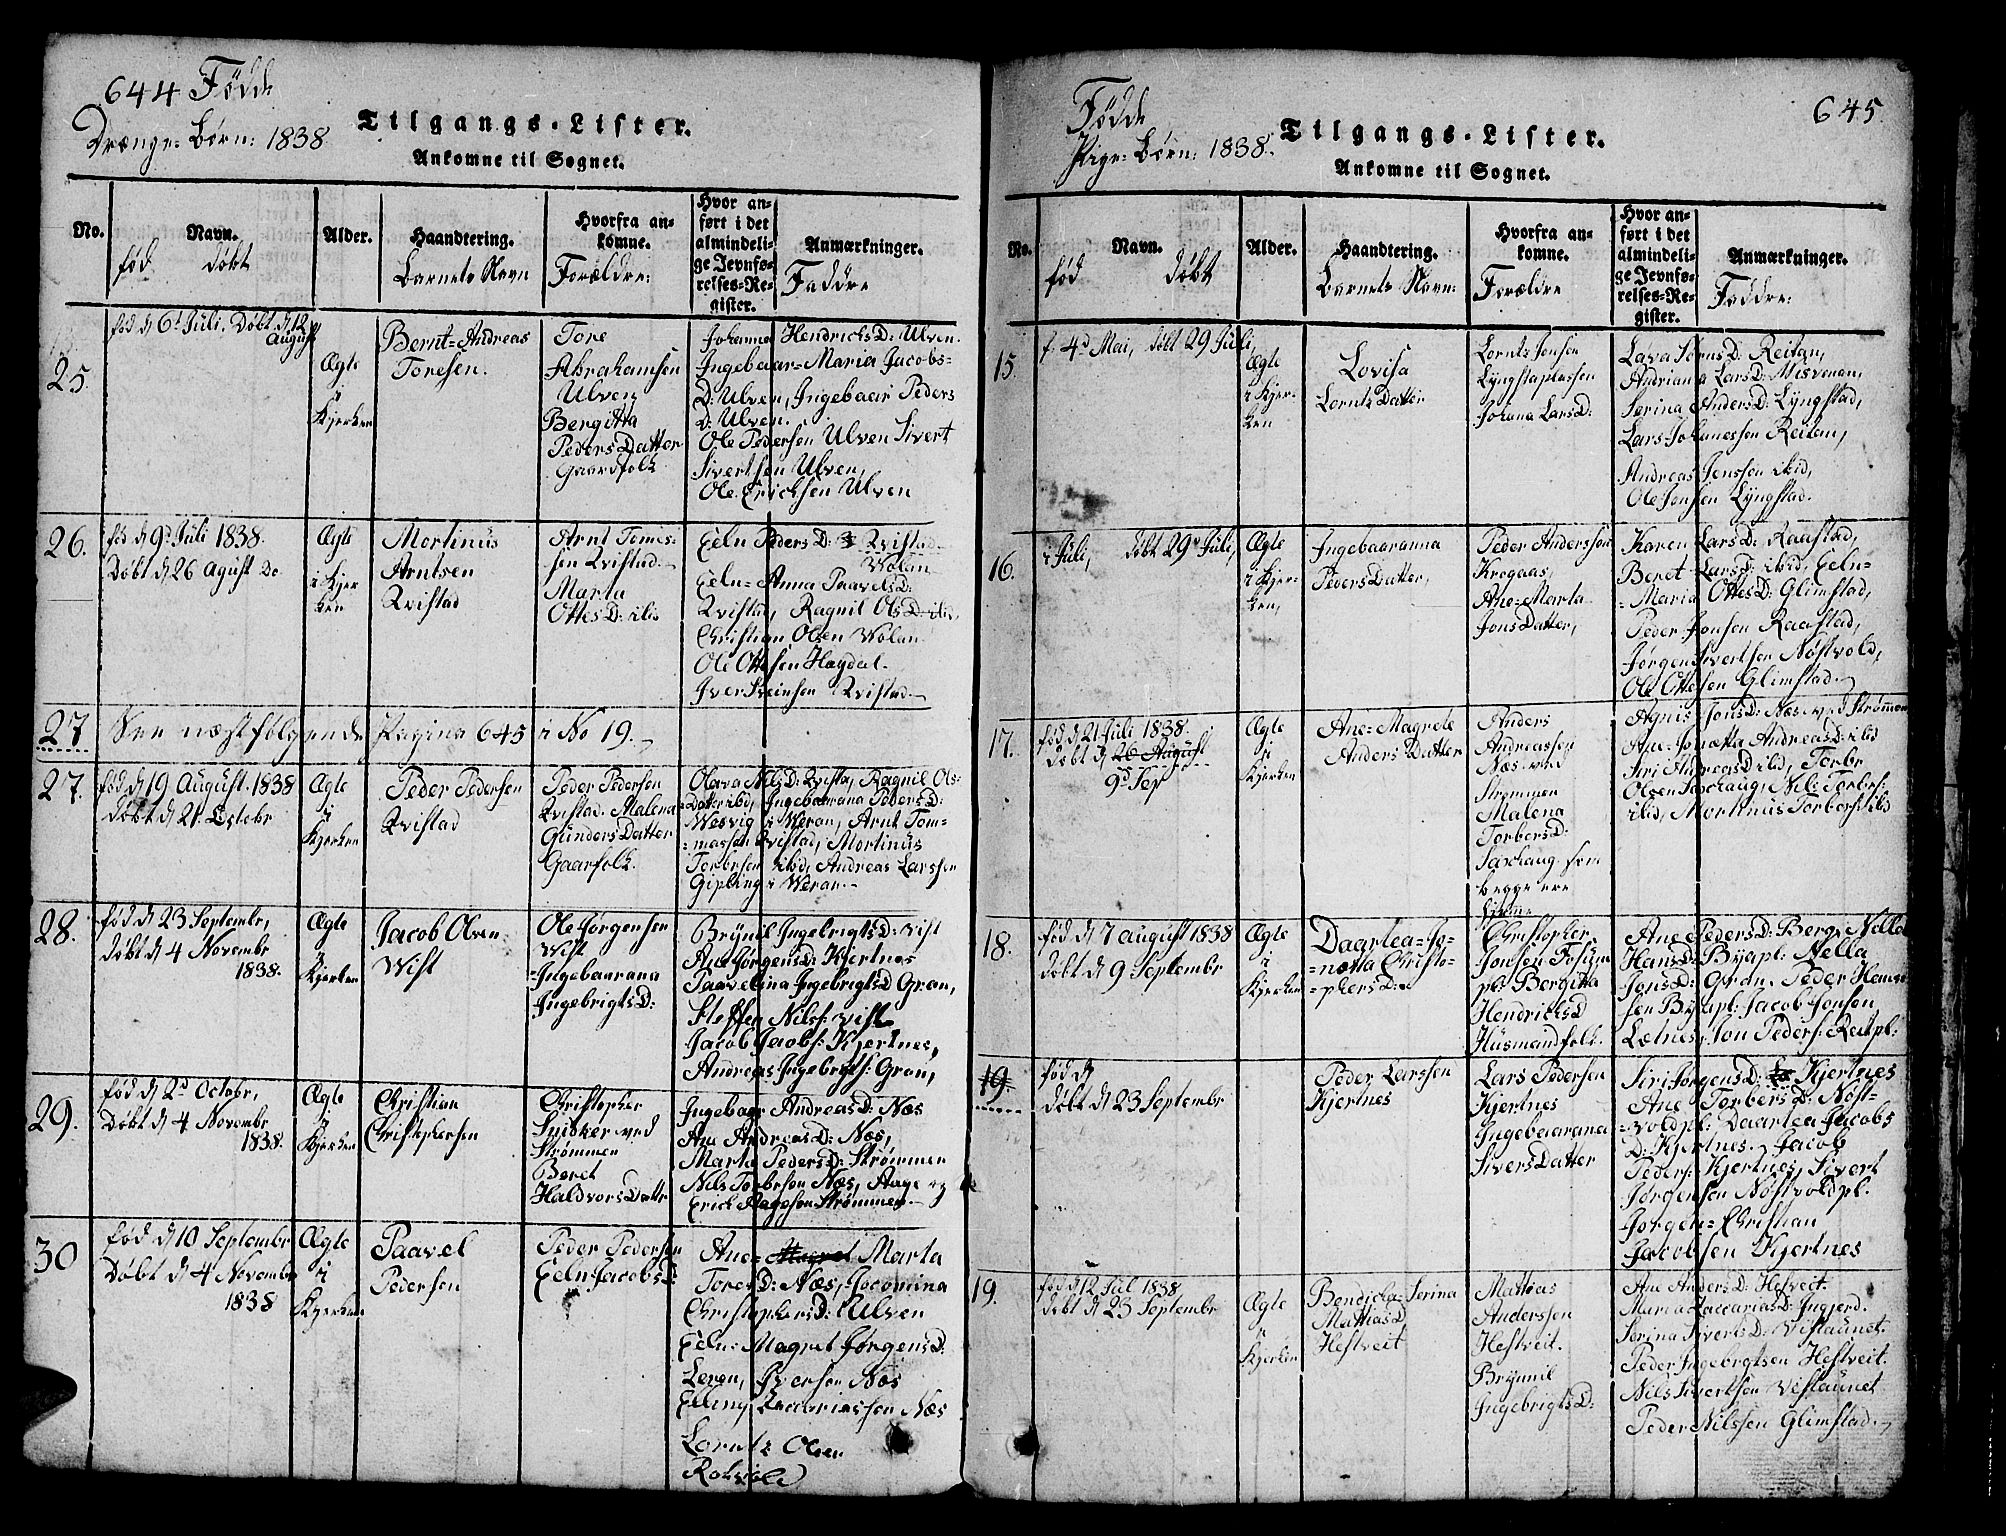 644 Fødde
Drænge-Børn: 1838
Tilgangs-Lister.
Ankomne til Sognet.
No.
Navn.
Alder.
Haandtering.
Hvorfra an-
komne.
Hvor an-
ført i det
almindeli-
ge Jevnfø-
relses-Re-
gister.
Anmærkninger.
fød døbt
Barnets Navn
Forældre:
Faddre
25.
fød d 6t Juli, Døbt d 12
August
Ægte
i
Kjerken
Bernt=Andreas
Toresen.
Tore
Abrahamsen
Ulven
Bergitta
PedersDatter
Gaardfolk
Johanna HendrichsD: Ulven.
Ingebaar=Maria Jacobs-
D: Ulven, Ingebaar Peders
D: Ulven.
Ole Pedersen Ulven Sivert
Sivertsen Ulven,
Ole Ericksen Ulven
26.
fød d 9d Juli 1838.
Døbt d 26 Agust Do
Ægte
i Kjer
ken
Mortinus
Arntsen
Qvistad
Arnt Tomis-
sen Qvistad.
Marta
OttesD: ibid
Eeln PedersD: Qvistad
Wolan
Eeln=Anna PaavelsD:
Qvistad, Ragnil OlsD ibid,
Christian Olsen Wolan
Ole Ottesen Hagdal.
Iver Sveinsen Qvistad.
27
See næstfølgende Pagina 645 i No 19.
27.
fød d 19 August. 1838
Døbt d 21 Octobr
Ægte
i
Kjerken
Peder Pedersen
Qvistad
Peder Pedersen
Qvistad. Malena
GundersDatter
Gaarfolk.
Olava NilsD: Qvista, Ragnil Ols-
Datter ibid, Ingebaarana PedersD:
Wesvig i Weran, Arnt Tom-
=massen Qvistad, Mortinus
Torbersen ibid, Andreas Larssen
Gipling i Weran.
28.
fød d 23 Septembr,
døbt d 4 Novembr
1838.
Ægte
i
Kjerken
Jacob Olsen
Wist
Ole Jørgensen
Wist
=Ingebaarana
IngebrigtsD:
Brynil IngebrigtsD: Vist
Ane JørgensD: Kjertnes
Paavelina IngebrigtsD Gran,
Steffen Nilss: Vist
Jacob Jacobs: Kjertnes,
Andreas Ingebrigts: Gran,
29.
fød d 2d Octobr,
Døbt d 4 Novembr
1838.
Ægte
i
Kjerken
Christian
Christophersen
Christopher
Snidker ved
Strømmen
Beret
HaldvorsDattr
Ingebaar AndreasD: Næs
Ane AndreasD: Næs,
Marta PedersD: Strømmen
Nils Torbersen Næs, Aage og
Erick Aagesen Strømmen
30
fød d 10 Septembr
Døbt d 4 Novembr
1838
Ægte
i
Kjerken
Paavel
Pedersen
Peder Pedersen
Eeln JacobsD:
Ane= Magret Marta
ToresD: Næs, Jocomina
ChristophersD: Ulven
Eeln=Magret JørgensD:
Leren, Iversen Næs
Elling Zacariassen Næs
Lorntz Olsen
645.
Fødde
Pige=Børn: 1838.
Tilgangs-Lister.
Ankomne til Sognet.
No.
Navn.
Alder.
Haandtering.
Hvorfra an-
komne.
Hvor an-
ført i det
almindeli-
ge Jevnfø-
relses-Re-
gister.
Anmærkninger.
fød døbt
Barnets Navn:
Forældre
Faddre:
15.
f. 4d Mai, døbt 29 Juli,
Ægte
i Kjer-
ken
Lovisa
LorntzDatter
Lornts Jonsen
Lyngstaplassen
Johana LarsD:
Lava SørnsD: Reitan,
Andriana LarsD: Misvenan,
Serina AndersD: Lyngstad,
Lars Johanessen Reitan,
Andreas Jenssen ibid,
Ole Jonsen Lyngstad.
16.
i Juli, døbt 29d Juli,
Ægte
i Kjer-
ken,
Ingebaaranna
PedersDatter,
Peder Anderssen
Krogaas,
Ane=Marta
JonsDatter,
Karen LarsD: Raastad,
Beret LarsD: ibid, Eeln-
=Maria OttesD: Glimstad,
Peder Jonsen Raastad,
Jørgen Sivertsen Nøstvold,
Ole Ottesen Glimstad.
17.
fød d 21 Juli 1838.
Døbt d 26 August
9d Sep
Ægte
i
Kjerken
Ane=Magrete
AndersDatter
Anders
Andreassen
Næs ved
Strømmen
Malena
TorbersD:
Saxhaug. som
begge ere
Agnis JonsD: Næs ved Strømmen
Ane Jonetta AndreasD: ibid
Siri AndreasD ibid, Torbr
Olsen Saxhaug, Nils Torbrs:
ibid, Mortinus Torbers: ibid
18.
fød d 7 August 1838
døbt d 9 Septembr
Ægte
i
Kjerken
Daartea=Jo-
=nætta Christo-
=phersD:
Christopher
Jonsen
pl: Bergitta
HendricksD
Husmandfolk.
Ane PedersD: Berg, Nella
HansD: Byapl: Nella
JonsD: Gran. Peder Hemin
sen Byapl: Jacob Jonsen
Letnes, Jon Peders: Reitpl:
19.
fød d
døbt d 23 Septembr
Peder Larssen
Kjertnes
Lars Pedersen
Kjertnes
Ingebaarana
SiversDatter
Siri JørgensD: Kjertnes
Ane TorbersD: Nøst-
=voldpl: Daartea Jacobs
D: Kjertnes. Jacob
Peders: Kjertnes, Sivert
Jørgensen Nøstvoldpl.
Jørgen=Christian
Jacobsen Kjertnes
19.
fød d 12 Jul 1838
døbt d 23 Septembr
Ægte
i
Kjerken
Bendicta=Serina
MattiasD
Hestveit
Mattias
Anderssen
Hestveit.
Brynnil
IngebrigtsD:
Ane AndersD: Hestveit.
Maria ZaccariasD: Ingjerd.
Serina SivertsD: Vistaunet.
Peder Ingebrigtsen Hestveit.
Nils Sivertsen Vistaunet
Peder Nilssen Glimstad.